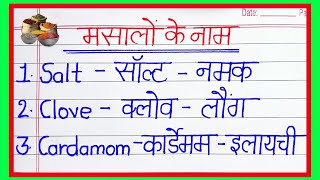 Date: Pa
मसालों के नाम
1. Salt - सॉल्ट - नमक
2. Clove - क्लोव - लौंग
3. Cardamom - कार्डेमम - इलायची